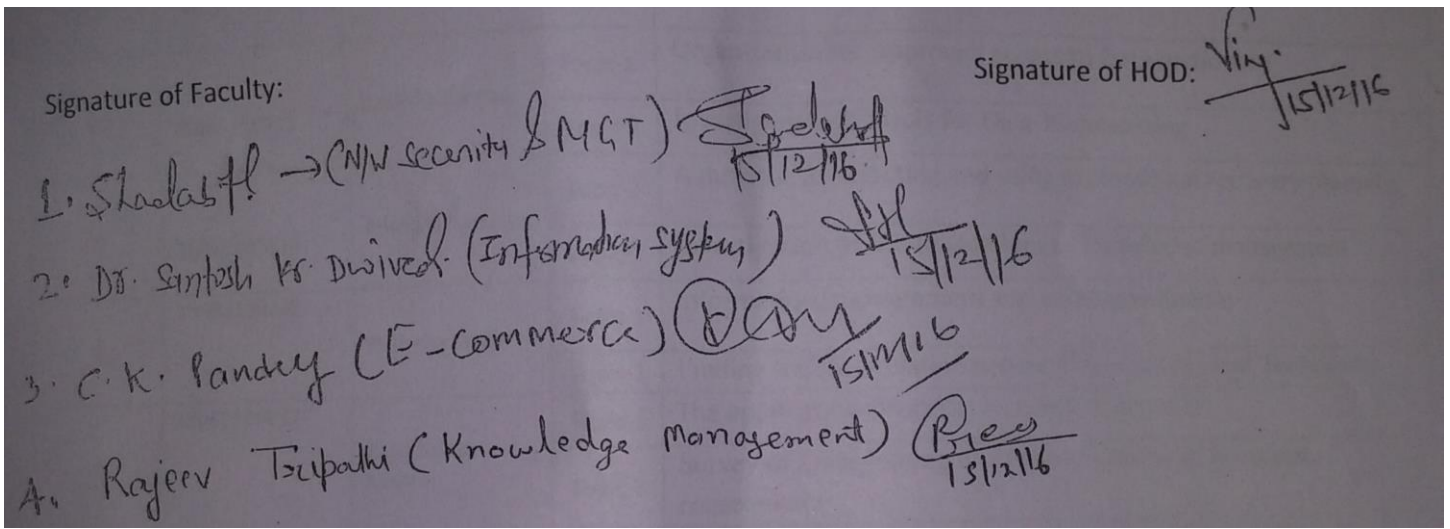 Signature of Faculty:
Signature of HOD:
15/12/16
1. → (N/W Security & MGT)
15/12/16
2. Dr. Santosh Kr. Dwivedi (Information system)
15/12/16
3. C.K. Pandey (E-Commerce)
15/12/16
4. Rajeev Tripathi (Knowledge Management)
15/12/16